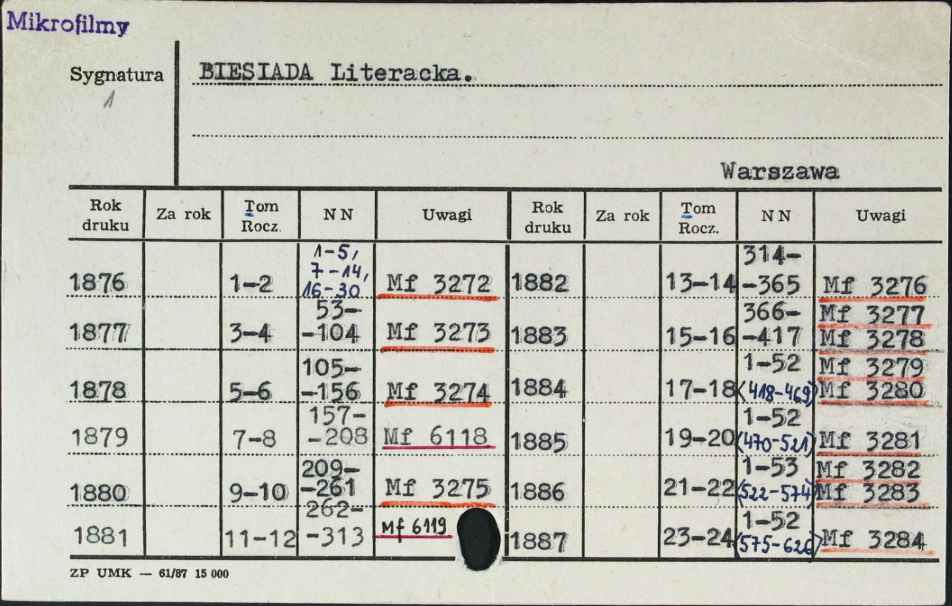 Mikrofilmy
Sygnatura
1
BIESIADA Literacka.
Warszawa
Rok druku Za rok Tom Rocz. NN Uwagi Rok druku Za rok Tom Rocz. NN Uwagi
1876 1-2 1-5, 7-14, 16-30, Mf 3272 1882 13-14 314--365 Mf 3276
1877 3-4 53--104 Mf 3273 1883 15-16 366--417 Mf 3277 Mf 3278
1878 5-6 105--156 Mf 3274 1884 17-18 1-52 (418-469) Mf 3279 Mf 3280
1879 7-8 157--208 Mf 6118 1885 19-20 1-52 (470-521) Mf 3281
1880 9-10 209--261 Mf 3275 1886 21-22 1-53 (522-574) Mf 3282 Mf 3283
1881 11-12 262--313 Mf 6119 1887 23-24 1-52 (575-626) Mf 3284
ZP UMK — 61/87 15 000